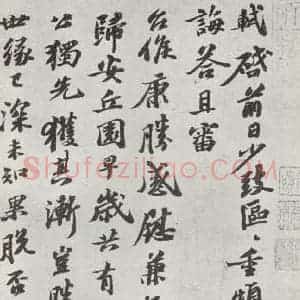 軾啓前日少致區〻重煩
誨答且審
台候康勝感慰兼
歸安丘園早歲共有
公獨先獲其漸豈勝
世緣已深未知果脫否